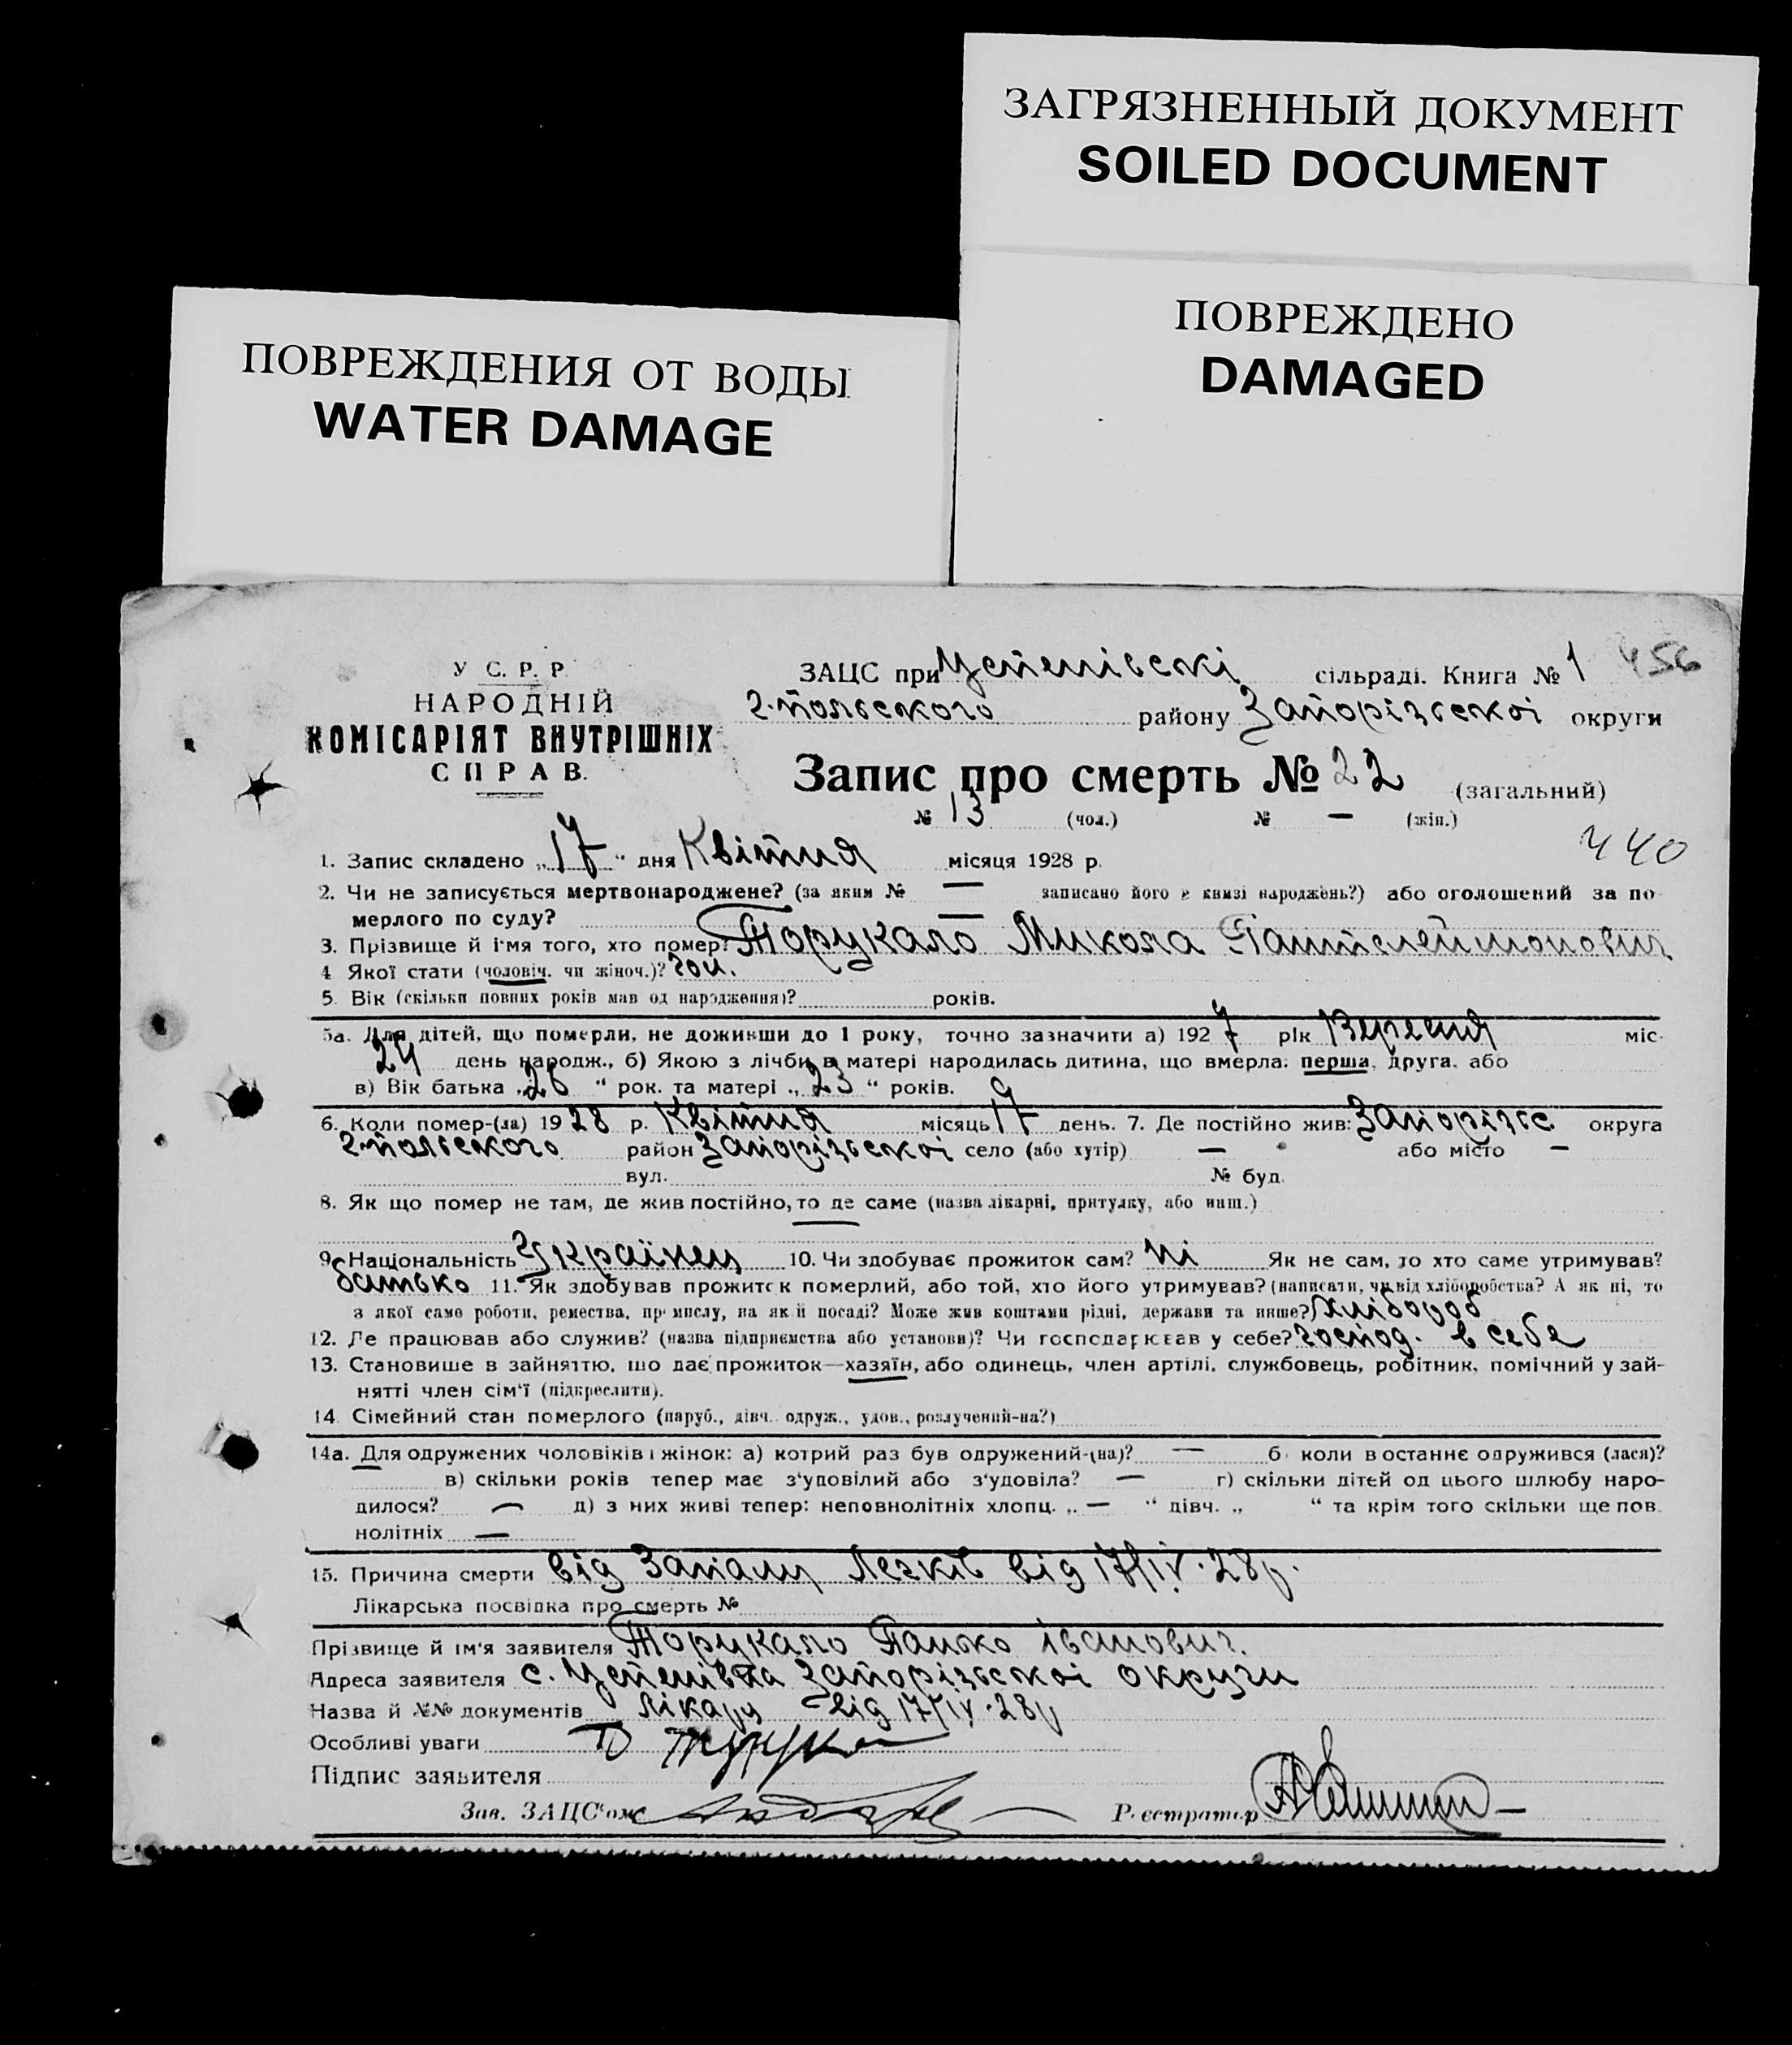 ЗАГРЯЗНЕННЫЙ ДОКУМЕНТ
SOILED DOCUMENT
ПОВРЕЖДЕНО
DAMAGED
ПОВРЕЖДЕНИЯ ОТ ВОДЫ
WATER DAMAGE
У С. Р. Р.
НАРОДНІЙ
КОМІСАРІЯТ ВНУТРІШНІХ
СПРАВ.
ЗАЦС при Успенівскі сільраді. Книга № 1 456
г.польского району Запорізьскоі округи
Запис про смерть № 22 (загальний)
№ 13 (чол.) № — (жін.)
440
1. Запис складено „17“ дня Квітня місяця 1928 р.
2. Чи не записується мертвонароджене? (за яким № — записано його в книзі народжень?) або оголошений за по-
мерлого по суду? —
3. Прізвище й ім'я того, хто помер? Торукало Микола Пантелеймонович
4. Якої статі (чоловіч. чи жіноч.)? чол.
5. Вік (скільки повних років мав од народження)? років.
5а. Для дітей, що померли, не доживши до 1 року, точно зазначити а) 1927 рік Вересня міс.
24 день народж., б) Якою з лічби в матері народилась дитина, що вмерла: перша, друга, або
в) Вік батька „26“ рок. та матері „23“ років.
6. Коли помер-(ла) 1928 р. Квітня місяць 17 день. 7. Де постійно жив: Запорізьс. округа
г.польского район Запорізьскоі село (або хутір) — або місто —
вул. № буд.
8. Як що помер не там, де жив постійно, то де саме (назва лікарні, притулку, або инш.)
9. Національність Українец 10. Чи здобуває прожиток сам? ні Як не сам, то хто саме утримував?
батько 11. Як здобував прожиток померлий, або той, хто його утримував? (написати, чи від хліборобства? А як ні, то
з якої саме роботи, ремества, промислу, на якій посаді? Може жив коштами рідні, держави та инше?) хлібороб
12. Де працював або служив? (назва підприємства або установи)? Чи господарював у себе? господ. в себе
13. Становище в зайняттю, що дає прожиток—хазяїн, або одинець, член артілі, службовець, робітник, помічний у зай-
нятті член сім'ї (підкреслити).
14. Сімейний стан померлого (паруб., дівч. одруж., удов., розлучений-на?)
14а. Для одружених чоловіків і жінок: а) котрий раз був одружений-(на)? — б) коли востаннє одружився (лася)?
в) скільки років тепер має з'удовілий або з'удовіла? — г) скільки дітей од цього шлюбу наро-
дилося? — д) з них живі тепер: неповнолітніх хлопц. „—“ дівч. „ “ та крім того скільки ще пов-
нолітніх —
15. Причина смерти від Запалу Легків від 17/IV.28р.
Лікарська посвідка про смерть №
Прізвище й ім'я заявителя Торукало Панько Іванович.
Адреса заявителя с. Успенівка Запорізьскоі округи
Назва й №№ документів Лікару від 17/IV.28р
Особливі уваги
Підпис заявителя
Зав. ЗАЦС'ом
Реєстратор